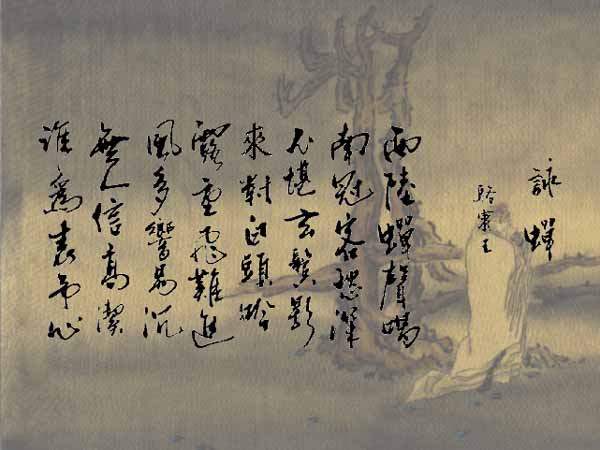 詠蟬
駱賓王
西陸蟬聲唱
南冠客思深
不堪玄鬢影
來對白頭吟
露重飛難進
風多響易沉
無人信高潔
誰為表予心